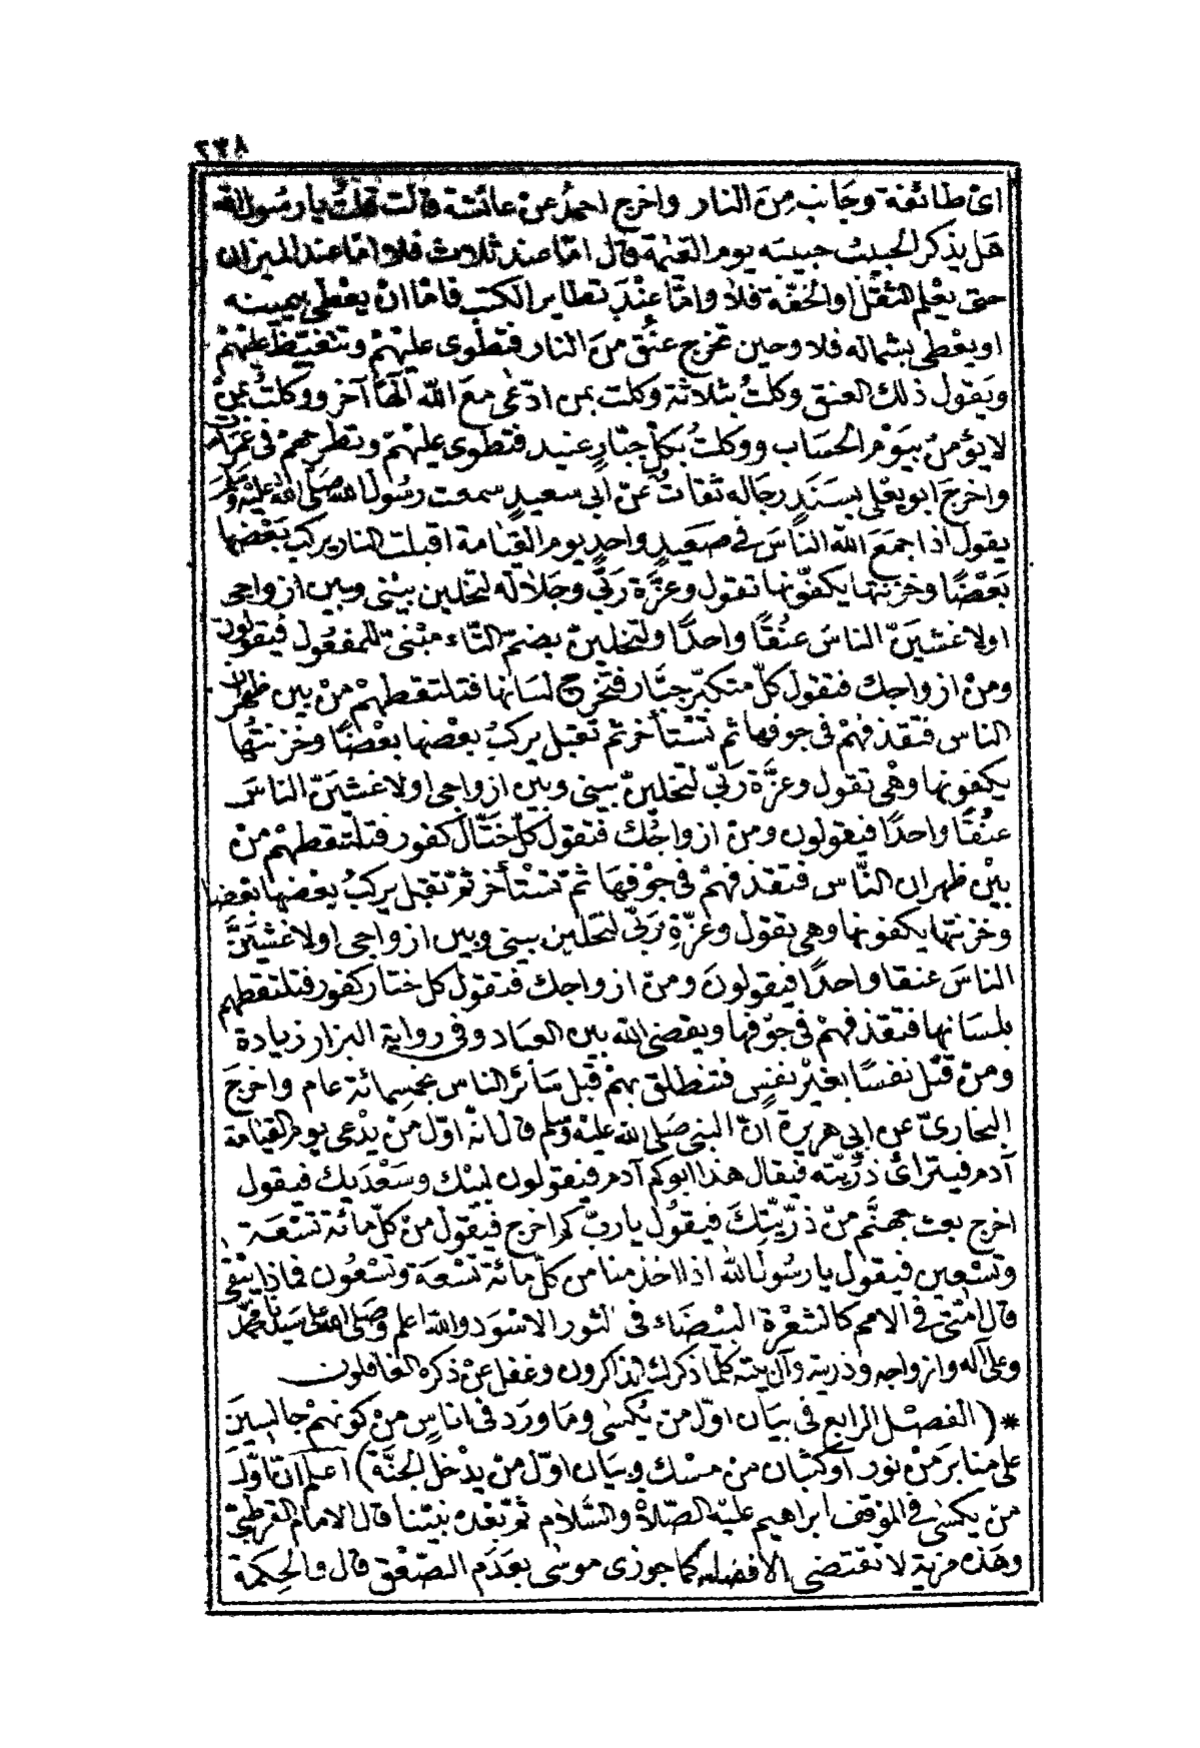 ٢٣٨
اىْ طائفة وجَانب مِنَ النار واخرج احمدُ عنْ عائشة قالت قلتُ يا رسُول الله
هَل يذكر الحبيبُ حبيبَه يوم القيٰمة قال امّا عند ثلاث فلا امّا عند الميزان
حتى يعْلم الثقل او الخفّة فلا وامّا عِنْدَ تطاير الكتب فامّا انْ يعْطى بيمينه
او يعْطى بشماله فلا وحين تخرج عنُق منَ النار فتطْوى عليْهمْ وتتغيّظ عليْهمْ
ويَقول ذلك العنق وكلتُ بثلاثة وكلت بمن ادّعى معَ الله الٰهًا آخر ووكلتُ بمنْ
لا يؤمنُ بيَوْم الحسَاب ووكلتُ بكلّ جبّارٍ عنيد فتطوى عليْهمْ وتطرحهمْ فى غمرَات
واخرجَ ابو يعْلى بسَنَدٍ رجَاله ثقاتٌ عنْ ابى سعيدٍ سمعت رسُول الله صَلى الله عليْه وسَلم
يقول اذا جمَعَ الله الناسَ فى صعَيدٍ واحدٍ يوم القيَامة اقبلت النار يركبُ بَعْضها
بَعْضًا وخزنتها يكفّونها تقول وعزَّة ربّى وجَلاله لتخلين بيْنى وبين ازواجى
اولاغشينَّ الناسَ عنُقًا واحدًا ولتخلينّ بضمّ التّاء مبْنىّ للمفعُول فيقولون
ومنْ ازواجك فتقول كلّ متكبّر جبَّار فتخرج لسَانها فتلتقطهمْ منْ بين ظهران
الناس فتقذفهمْ فى جوفها ثم تتسْتأخر ثمّ تقبل يركبُ بعْضها بعْضًا وخزنتُها
يكفونها وهْى تقول وعزَّة ربّى لتخلينّ بينى وبين ازواجى اولاغشينّ الناسَ
عنُقًا واحدًا فيقولون ومنْ ازواجُك فتقول كلّ ختّال كفور فتلتقطهمْ منْ
بيْن ظهران النَّاس فتقذفهمْ فى جوْفهَا ثمّ تتسْتأخر ثمّ تقبل يركبُ بعْضها بعضا
وخزنتها يكفونها وهى تقول وعزّةِ ربّى لتخلين بينى وبين ازواجى اولاغشينَّ
الناسَ عنقا واحدًا فيقولونَ ومنْ ازواجك فتقول كل ختار كفور فتلتقطهم
بلسَانها فتقذفهمْ فى جوْفها ويقضى الله بين العبَاد وفى رواية البزار زيادة
ومنْ قتلَ نفسًا بغيْر نفسٍ فتنطلق بهمْ قبل سَائر الناس بخمسِمائة عام واخرجَ
البخارىّ عن ابى هريرة انّ النبى صَلى الله عليْه وسَلم قال انّه اوّل منْ يدْعى يوم القيَامة
آدم فيتراىٔ ذرّيّته فيقال هذا ابوكم آدم فيقولون لبيْك وسَعْدَيك فيقول
اخرج بعث جهنَّم منْ ذرّيّتِكَ فيقولُ يا ربّ كم اخرج فيَقول منْ كلّ مائة تسْعَة
وتسْعين فيقول يا رسُول الله اذا اخذ منا من كلّ مائة تسْعة وتسْعُون فماذا يبْقى
قال امّتى فى الامم كالشعْرة البيْضَاء فى الثور الاسْود والله اعلم وصَلى الله على سيّدنا محمّد
وعلى آله وازواجه وذريته وآل بيْته كلّما ذكرك الذاكرون وغفل عنْ ذكره الغافلون
* (الفصْل الرابع فى بيَان اوّل منْ يُكسٰى ومَا ورَد فى اناسٍ منْ كونهمْ جَالسِينَ
على منابرَ منْ نور او كثبان من مسْك وبيَان اوّل منْ يدْخل الجنَّة) اعلم انّ اوّل
منْ يكسٰى فى الموْقف ابراهيم عليْه الصّلاةُ والسَّلام ثمّ بَعْده نبيّنا قال الامام القرطبىّ
وهَذه مزية لا تقتضى الافضليه كما جوزى موسٰى بعَدَم الصّعْق قال والحِكمة